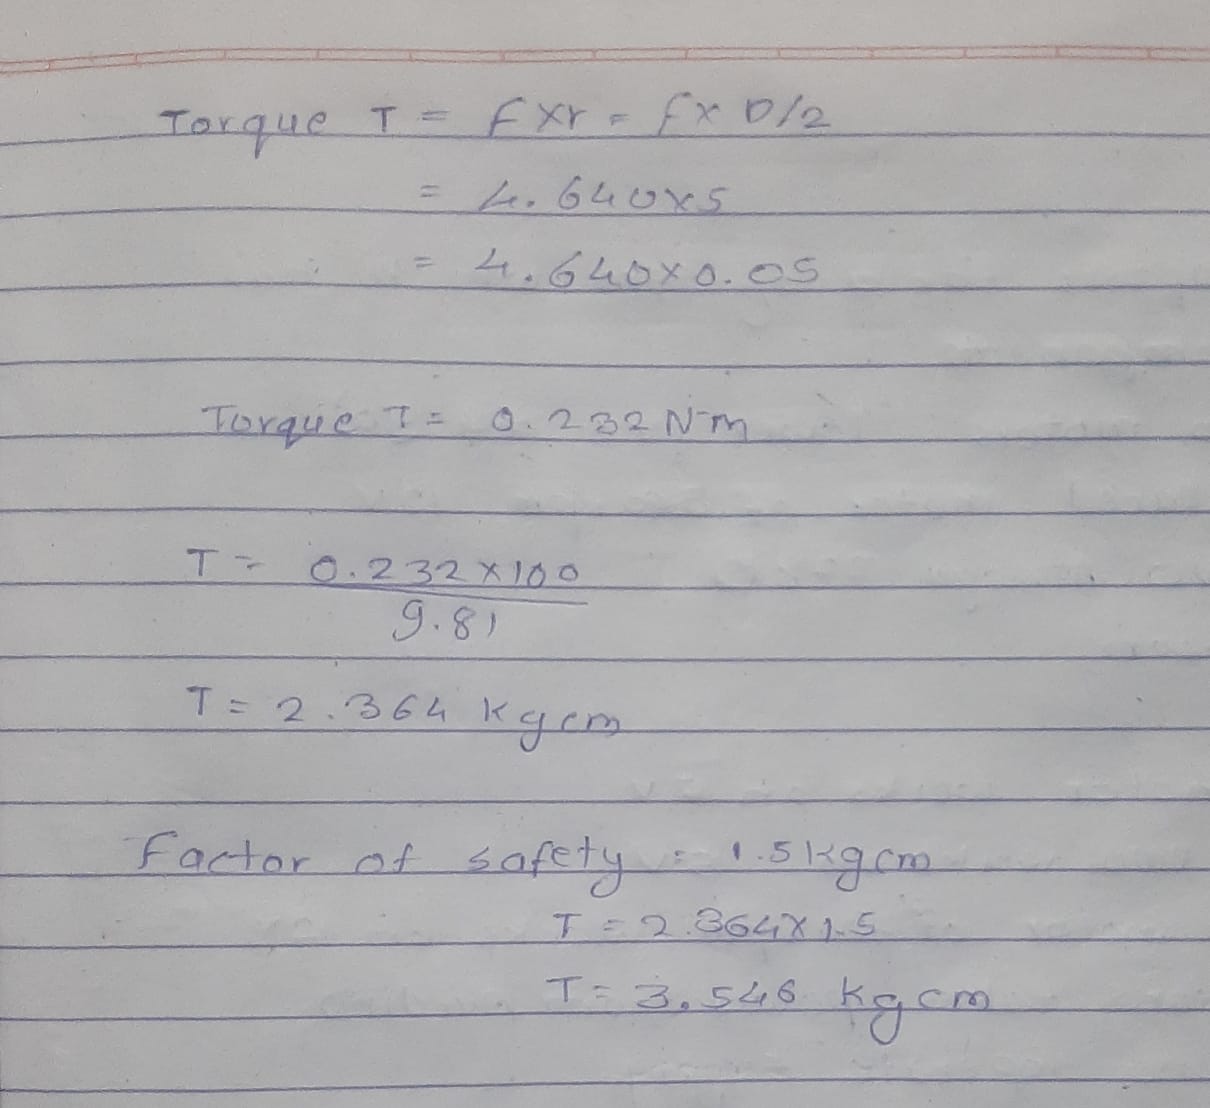 Torque T = F×r = F× D/2
= 4.640×5
= 4.640×0.05
Torque T = 0.232 N-m
T = 0.232×100
9.81
T = 2.364 kgcm
Factor of safety = 1.5kgcm
T = 2.364×1.5
T = 3.546 kgcm